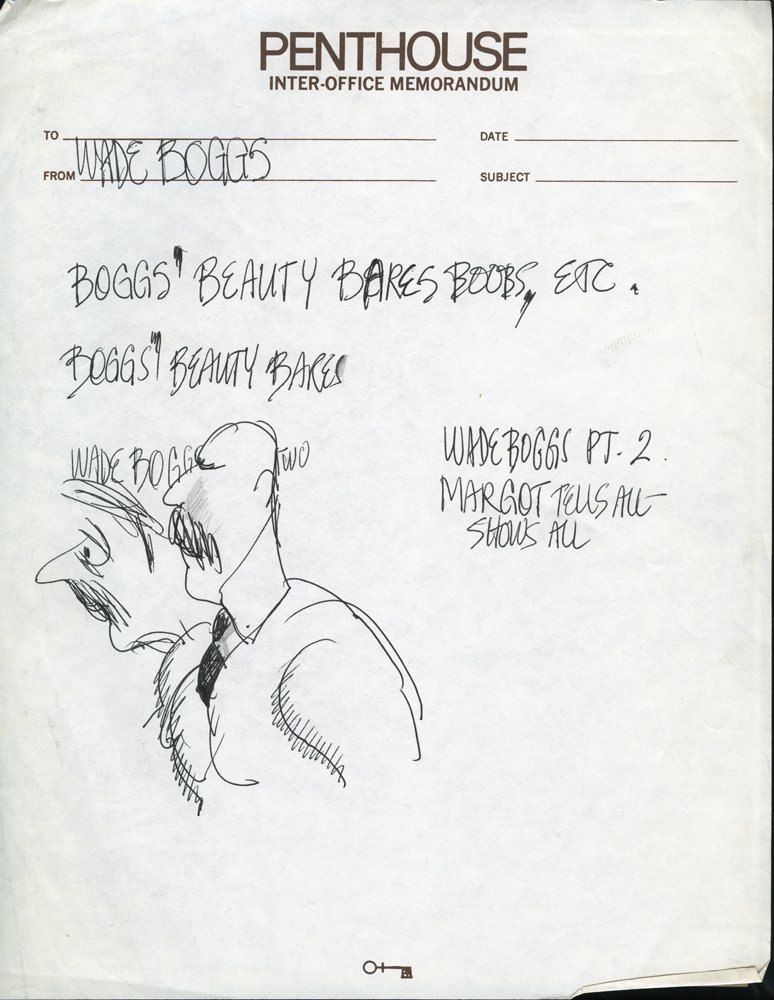 PENTHOUSE
INTER-OFFICE MEMORANDUM
TO
DATE
WADE BOGGS
FROM
SUBJECT
BOGGS' BEAUTY BARES BOOBS, ETC.
BOGGS' BEAUTY BARES
WADE BOGGS TWO
WADE BOGGS PT. 2.
MARGOT TELLS ALL-
SHOWS ALL